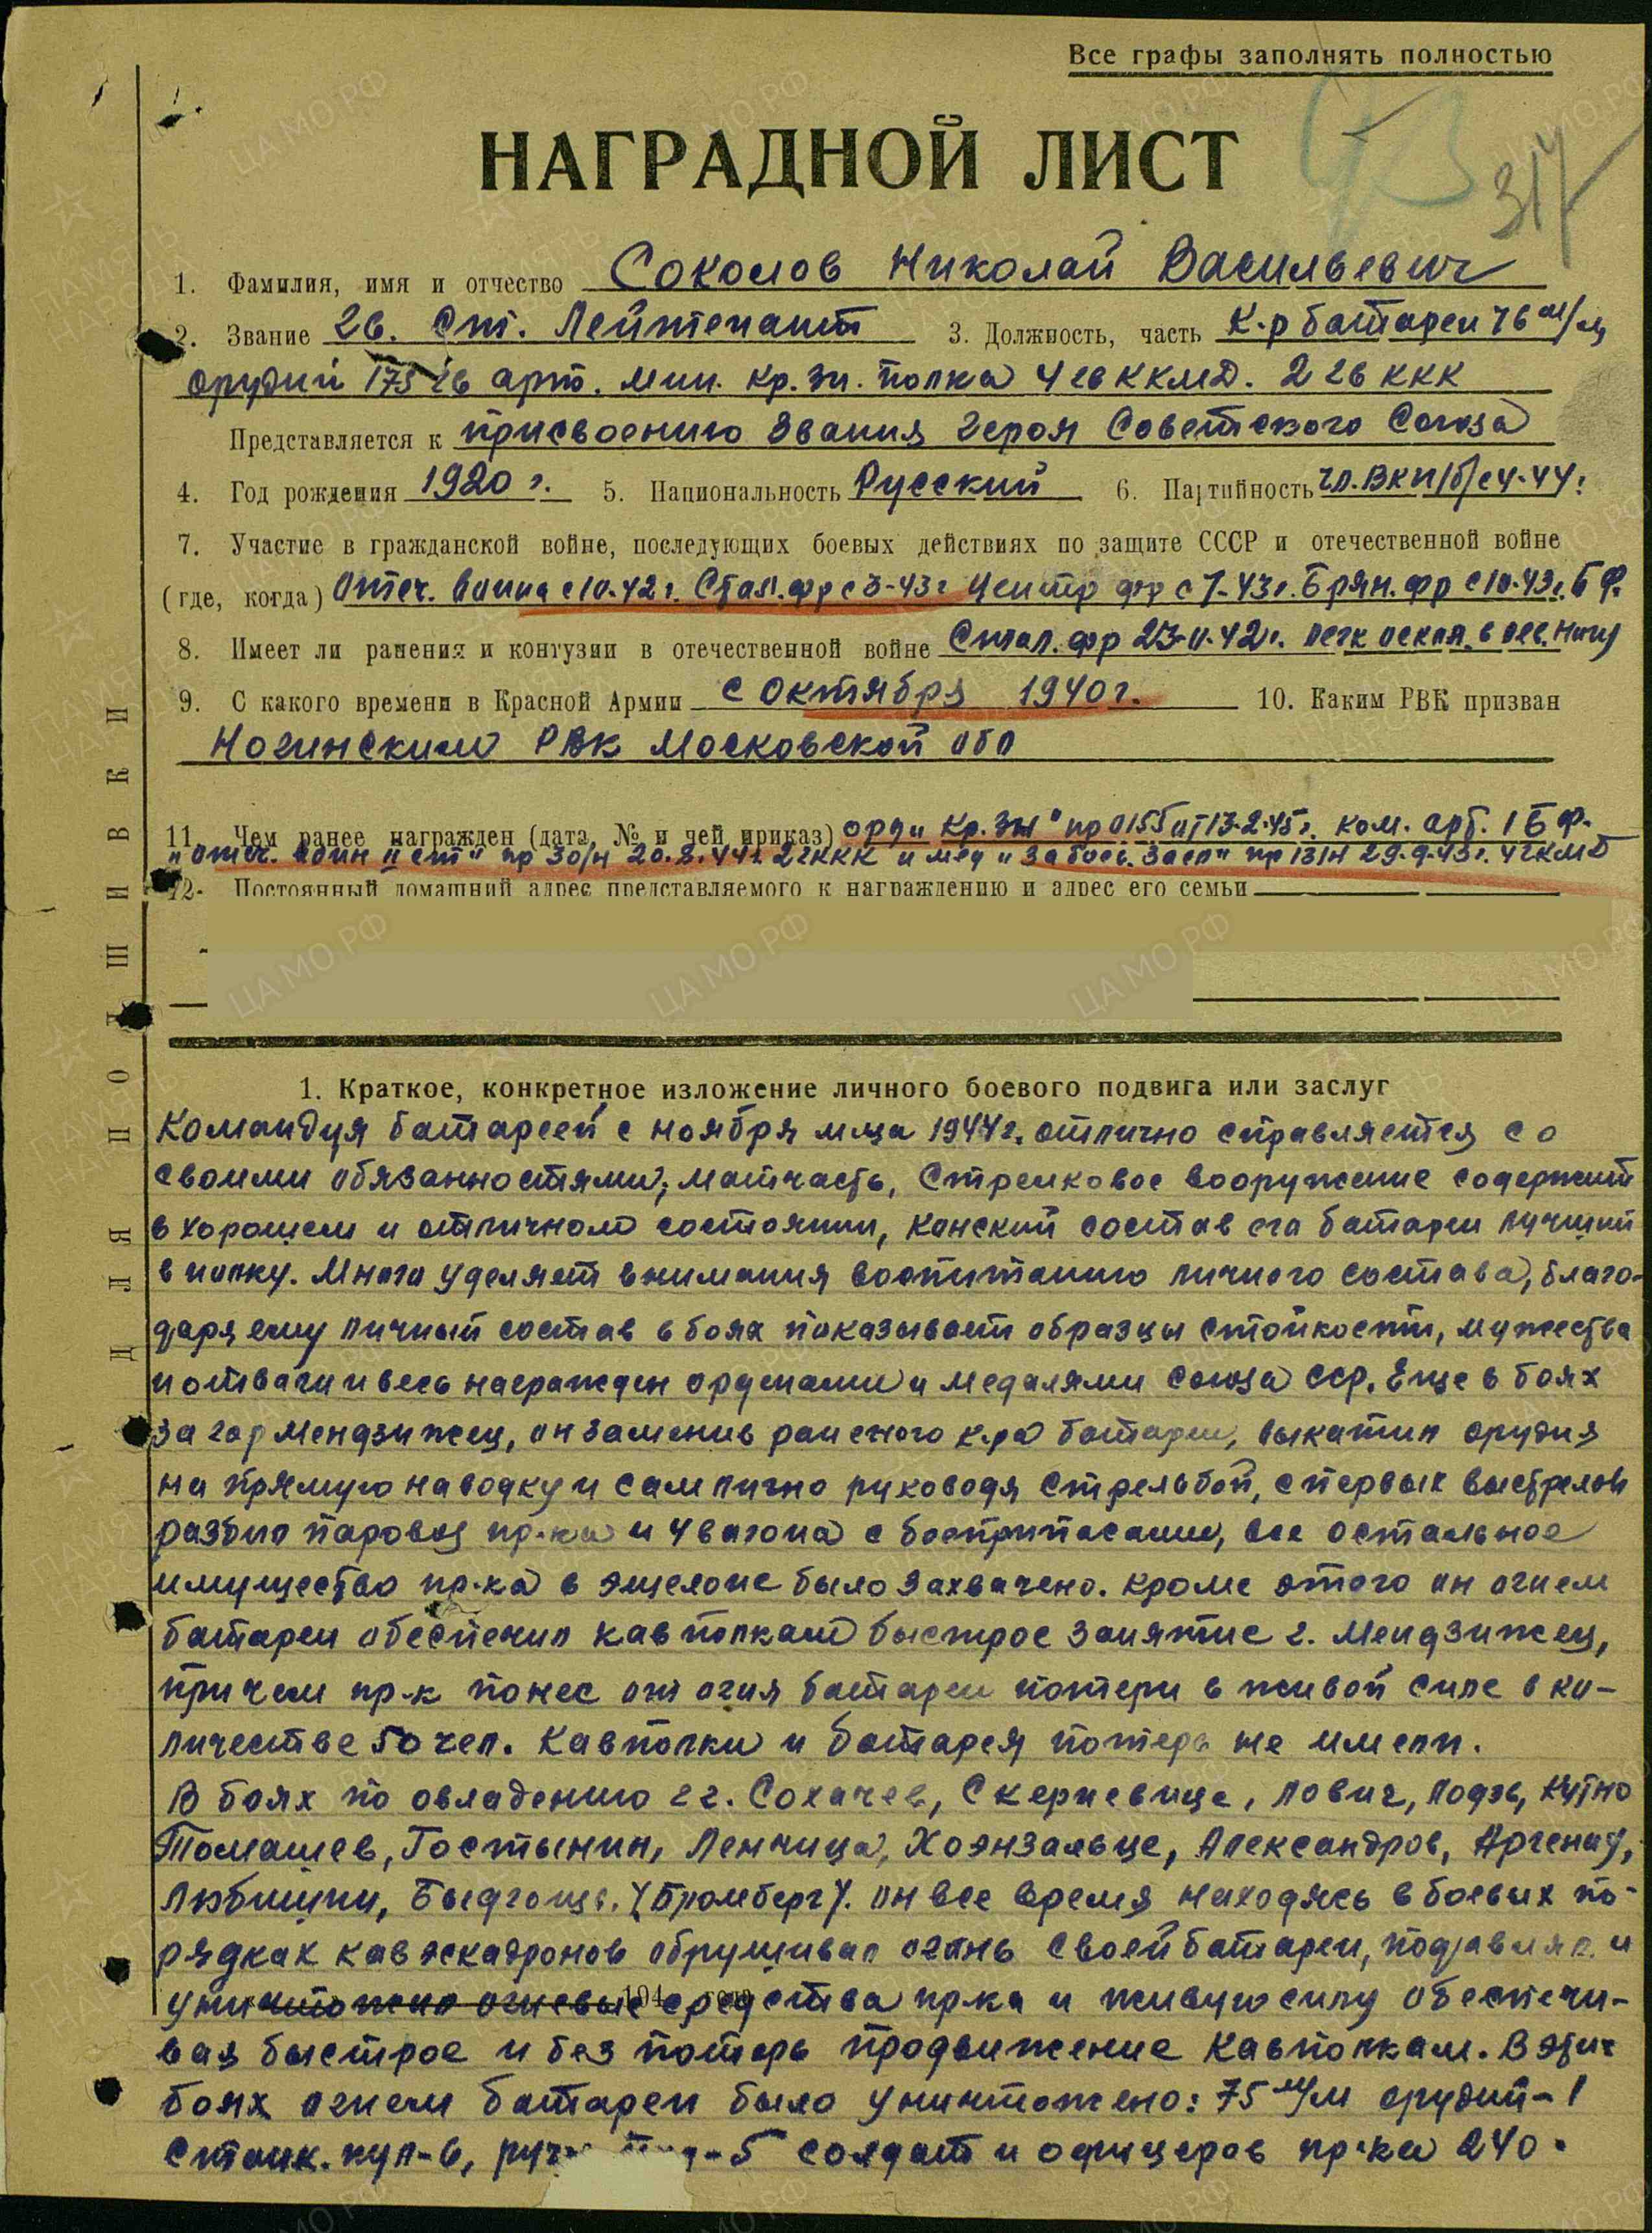 Все графы заполнять полностью
93
317
НАГРАДНОЙ ЛИСТ
1. Фамилия, имя и отчество Соколов Николай Васильевич
2. Звание Гв. Ст. Лейтенант 3. Должность, часть К-р батареи 76 м/м
орудий 175 гв арт. мин. Кр. Зн. полка 4 гв ККМД. 2 гв ККК
Представляется к присвоению Звания Героя Советского Союза
4. Год рождения 1920 г. 5. Национальность Русский 6. Партийность чл. ВКП/б/ с 4-44 г.
7. Участие в гражданской войне, последующих боевых действиях по защите СССР и отечественной войне
(где, когда) Отеч. Война с 10-42 г. Стал. фр с 5-43 г Центр фр с 7-43 г. Брян. фр с 10-43 г. Б Ф.
8. Имеет ли ранения и контузии в отечественной войне Стал. фр 23-11-42 г. легк оскол. в лев. ногу
9. С какого времени в Красной Армии с Октября 1940 г. 10. Каким РВК призван
Ногинским РВК Московской обл
11. Чем ранее награжден (дата, № и чей приказ) орд „Кр. Зн" пр 0155 от 13-2-45 г. ком. арт. 1 Б Ф.
„Отеч. Войн II ст" пр 30/н 20.8.44 г. 2 гккк и мед „За боев. Засл" пр 13/н 29-9-43 г. 4 гкмд
12. Постоянный домашний адрес представляемого к награждению и адрес его семьи
ДЛЯ ПОДШИВКИ
1. Краткое, конкретное изложение личного боевого подвига или заслуг
Командуя батареей с ноября м-ца 1944 г. отлично справляется со
своими обязанностями; матчасть, Стрелковое вооружение содержит
в хорошем и отличном состоянии, конский состав его батареи лучший
в полку. Много уделяет внимания воспитанию личного состава, благо-
даря ему личный состав в боях показывает образцы стойкости, мужества
и отваги и весь награжден орденами и медалями Союза ССР. Еще в боях
за гор Мендзижец, он заменив раненого к-ра батареи, выкатил орудия
на прямую наводку и сам лично руководя стрельбой, с первых выстрелов
разбил паровоз пр-ка и 4 вагона с боеприпасами, все остальное
имущество пр-ка в эшелоне было захвачено. Кроме этого он огнем
батареи обеспечил кавполкам быстрое занятие г. Мендзижец,
причем пр-к понес от огня батареи потери в живой силе в ко-
личестве 50 чел. Кавполки и батарея потерь не имели.
В боях по овладению гг. Сохачев, Скерневице, Лович, Лодзь, Кутно
Томашев, Гостынин, Ленчица, Хоэнзальце, Александров, Аргенау,
Любишин, Быдгощь. (Бромберг). он все время находясь в боевых по-
рядках кавэскадронов обрушивал огонь своей батареи, подавлял и
уничтожал огневые средства пр-ка и живую силу обеспечи-
194 года
вая быстрое и без потерь продвижение Кавполкам. В этих
боях огнем батареи было уничтожено: 75 м/м орудий-1
Станк. пул-6, руч -5 солдат и офицеров пр-ка 240.
ЦА МО РФ
ПАМЯТЬ НАРОДА